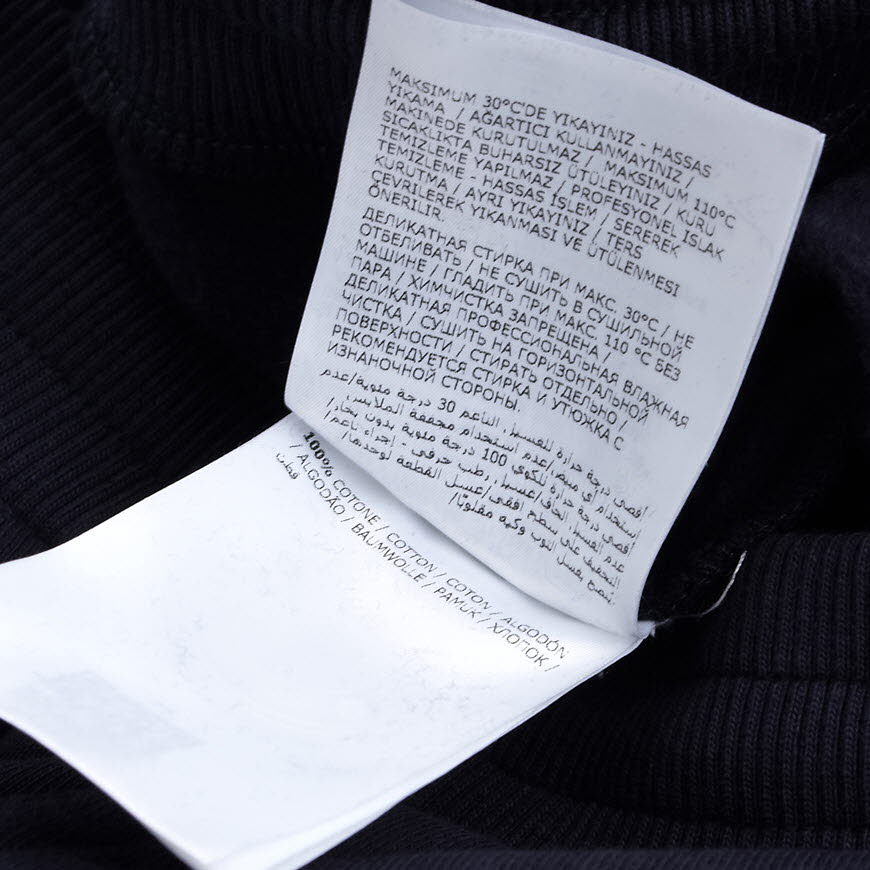 MAKSIMUM 30°C'DE YIKAYINIZ - HASSAS
YIKAMA / AĞARTICI KULLANMAYINIZ /
MAKİNEDE KURUTULMAZ / MAKSIMUM 110°C
SICAKLIKTA BUHARSIZ ÜTÜLEYINIZ / KURU
TEMİZLEME YAPILMAZ / PROFESYONEL ISLAK
TEMİZLEME - HASSAS İŞLEM / SEREREK
KURUTMA / AYRI YIKAYINIZ / TERS
ÇEVRİLEREK YIKANMASI VE ÜTÜLENMESI
ÖNERILIR.
ДЕЛИКАТНАЯ СТИРКА ПРИ МАКС. 30°C / НЕ
ОТБЕЛИВАТЬ / НЕ СУШИТЬ В СУШИЛЬНОЙ
МАШИНЕ / ГЛАДИТЬ ПРИ МАКС. 110 °C БЕЗ
ПАРА / ХИМЧИСТКА ЗАПРЕЩЕНА /
ДЕЛИКАТНАЯ ПРОФЕССИОНАЛЬНАЯ ВЛАЖНАЯ
ЧИСТКА / СУШИТЬ НА ГОРИЗОНТАЛЬНОЙ
ПОВЕРХНОСТИ / СТИРАТЬ ОТДЕЛЬНО /
РЕКОМЕНДУЕТСЯ СТИРКА И УТЮЖКА С
ИЗНАНОЧНОЙ СТОРОНЫ.
أقصى درجة حرارة للغسيل الناعم 30 درجة مئوية/عدم
استخدام أي مبيض/عدم استخدام مجففة الملابس/
أقصى درجة حرارة للكوي 100 درجة مئوية بدون بخار/
عدم الغسيل الجاف/غسيل رطب حرفي - إجراء ناعم/
التجفيف على سطح أفقي/غسل القطعة لوحدها/
ينصح بغسل الثوب وكيه مقلوبًا/
100% COTONE / COTTON / COTON / ALGODÓN
/ ALGODÃO / BAUMWOLLE / PAMUK / ХЛОПОК /
قطن